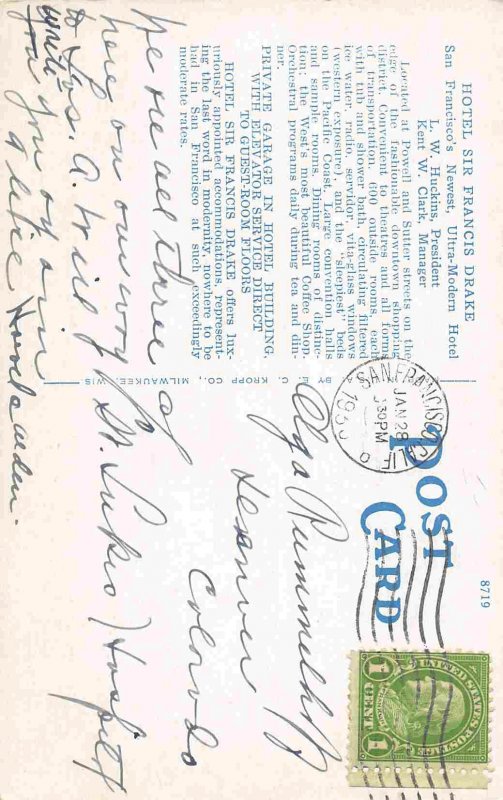 HOTEL SIR FRANCIS DRAKE
San Francisco's Newest, Ultra-Modern Hotel
L. W. Huckins, President
Kent W. Clark, Manager
Located at Powell and Sutter streets on the
edge of the fashionable downtown shopping
district. Convenient to theatres and all forms
of transportation. 600 outside rooms, each
with tub and shower bath, circulating filtered
ice water, radio, servidor, vita-glass windows
(western exposure), and the "sleepiest" beds
on the Pacific Coast. Large convention halls
and sample rooms. Dining rooms of distinc-
tion; the West's most beautiful Coffee Shop.
Orchestral programs daily during tea and din-
ner.
PRIVATE GARAGE IN HOTEL BUILDING,
WITH ELEVATOR SERVICE DIRECT
TO GUEST-ROOM FLOORS
HOTEL SIR FRANCIS DRAKE offers lux-
uriously appointed accommodations, represent-
ing the last word in modernity, nowhere to be
had in San Francisco at such exceedingly
moderate rates.
We are all three
here on our way
to Los A. Will
write you again
Alice
BY E. C. KROPP CO., MILWAUKEE, WIS
8719
POST
CARD
SAN FRANCISCO, CALIF.
JAN 28
30 PM
193
UNITED STATES POSTAGE
1 CENT 1
Olga Rummelhoff
Denver
Colorado
% St. Lukes Hospital